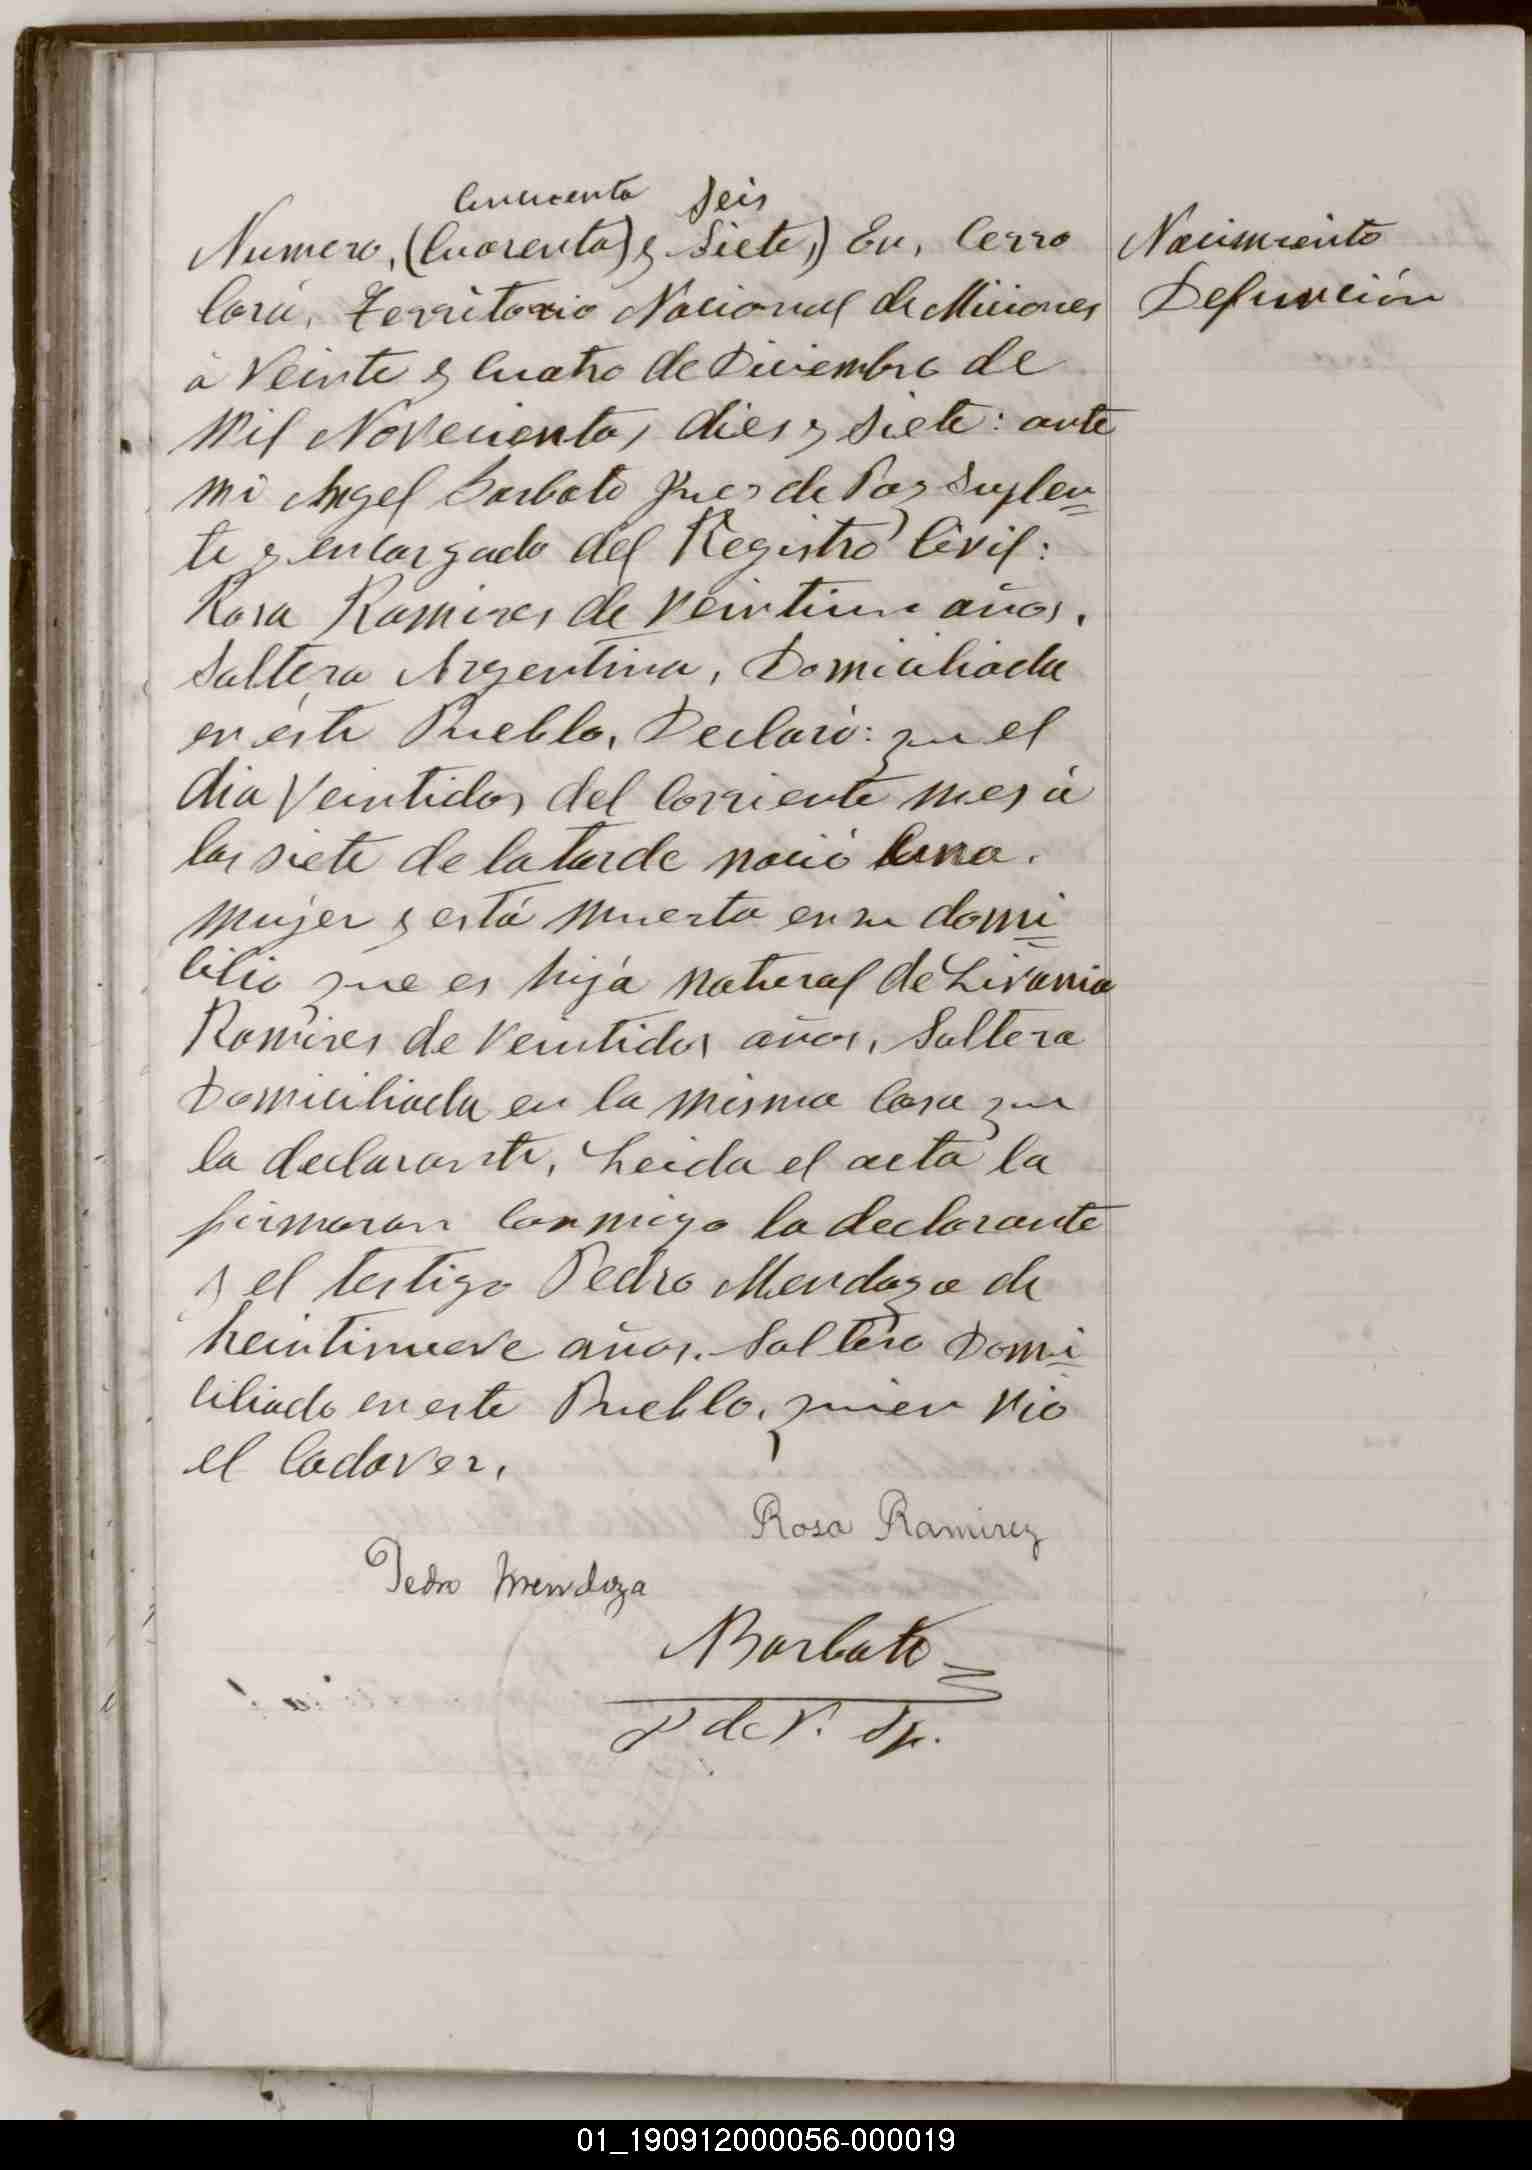 Cincuenta Seis
Numero, (Cuarenta) y Siete,) En, Cerro
Corá, Territorio Nacional de Miciones
á Veinte y Cuatro de Diciembre de
Mil Novecientos dies y Siete: ante
mi Angel Barbato Jues de Paz Suplen=
te y encargado del Registro Civil:
Rosa Ramires de Veintiun años,
Saltera Argentina, Domiciliada
en éste Pueblo, Declaró: que el
dia Veintidos del Corriente mes á
las siete de la tarde nació una.
mujer y está muerta en su domi=
cilio que es hija natural de Livania
Ramires de Veintidos años, Saltera
Domiciliada en la misma Casa que
la declarante, Leida el acta la
firmaran Conmigo la declarante
y el testigo Pedro Mendoza de
Veintinueve años. Saltero Domi=
ciliado en este Pueblo, quien vio
el Cadaver,
Rosa Ramirez
Pedro Mendoza
ABarbato
J de P. Sp.
Nacimiento
Defunción
01_190912000056-000019